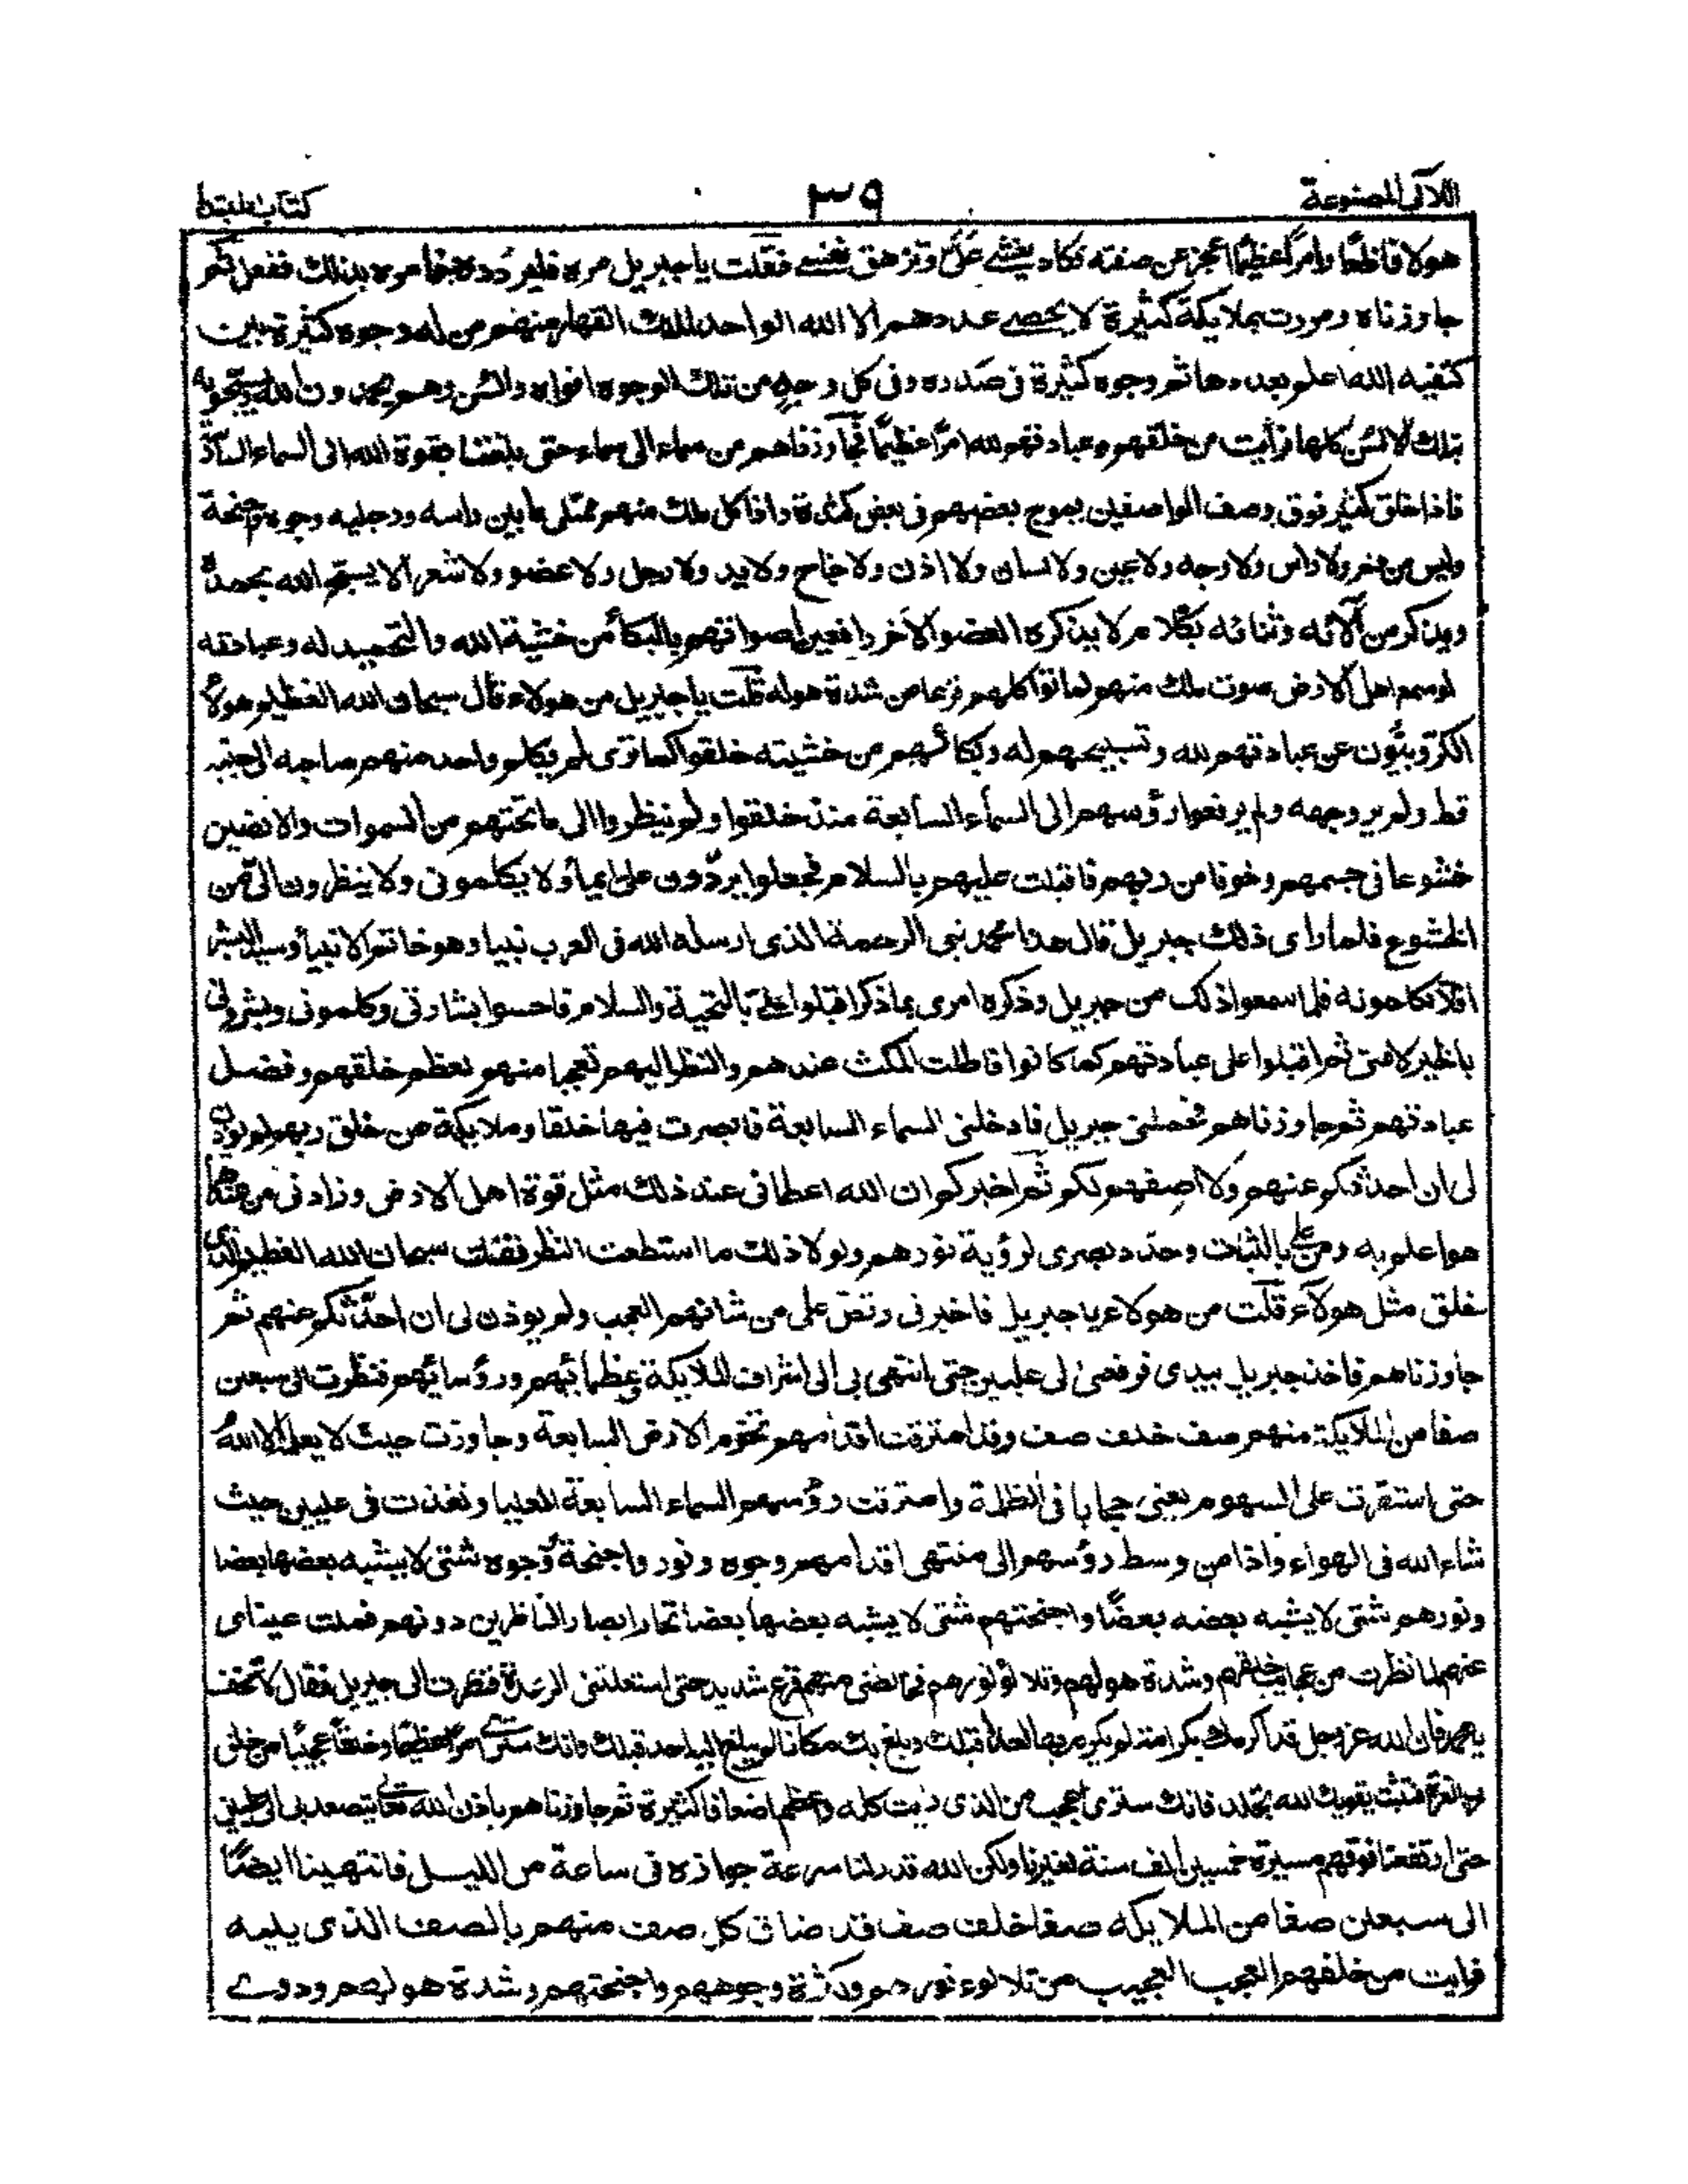 اللآلى المصنوعة
٣٩
كتاب المبتدا
هولا فاظعا وامرا عظيما اعجز عن صفته فكاد يغشى على وتزهق نفسى فقلت يا جبريل مره فليردده فيما مره بذلك ففعل ثم
جاوزناه ومررت بملايكة كثيرة لا يحصى عددهم الا الله الواحد الملك القهار منهم من له وجوه كثيرة بين
كتفيه الله اعلم بعددها ثم وجوه كثيرة فى صدره وفى كل وجه من تلك الوجوه افواه والسن وهم يحمدون الله ويسبحونه
بتلك الالسن كلها فرأيت من خلقهم وعبادتهم لله امرا عظيما فجاوزناهم من سماء الى سماء حتى بلغنا بقوة الله الى السماء السادسة
فاذا خلق كثير فوق وصف الواصفين يموج بعضهم فى بعض كثرة واذا كل ملك منهم ممتلى ما بين راسه ورجليه وجوه واجنحة
وليس من فم ولا راس ولا وجه ولا عين ولا لسان ولا اذن ولا جناح ولا يد ولا رجل ولا عضو ولا شعر الا يسبح الله بحمده
ويذكر من آلائه وثنائه بكلام لا يذكره العضو الآخر رافعين اصواتهم بالبكأ من خشية الله والتحميد له وعبادته
لو سمع اهل الارض صوت ملك منهم لماتوا كلهم فزعا من شدة هوله قلت يا جبريل من هولاء قال سبحان الله العظيم هولاء
الكروبيون عن عبادتهم لله وتسبيحهم له وبكائهم من خشيته خلقوا كما ترى لم يكلم واحد منهم صاحبه الى جنبه
قط ولم ير وجهه ولم يرفعوا رؤسهم الى السماء السابعة منذ خلقوا ولم ينظروا الى ما تحتهم من السموات والارضين
خشوعا فى جسمهم وخوفا من ربهم فاقبلت عليهم بالسلام فجعلوا يردون على ايماء ولا يكلمونى ولا ينظرون الى من
الخشوع فلما راى ذلك جبريل قال هذا محمد نبى الرحمة الذى ارسله الله فى العرب نبيا وهو خاتم الانبيأ وسيد البشر
افلا تكلمونه فلما سمعوا ذلك من جبريل وذكره امرى بما ذكر اقبلوا على بالتحية والسلام فاحسوا بشارتى وكلمونى وبشرونى
بالخير لامتى ثم اقبلوا على عبادتهم كما كانوا فاطلت المكث عندهم والنظر اليهم تعجبا منهم لعظم خلقهم وفضل
عبادتهم ثم جاوزناهم فحملنى جبريل فادخلنى السماء السابعة فابصرت فيها خلقا وملايكة من خلق ربهم لم يوذن
لى ان احدثكم عنهم ولا اصفهم لكم ثم اخبركم ان الله اعطانى عند ذلك مثل قوة اهل الارض وزادنى من عنده ما
هو اعلم به ومن على بالثبات وحدد بصرى لرؤية نورهم ولولا ذلك ما استطعت النظر فقلت سبحان الله العظيم الذى
خلق مثل هولاء قلت من هولاء يا جبريل فاخبرنى وقص على من شانهم العجب ولم يوذن لى ان احدثكم عنهم ثم
جاوزناهم فاخذ جبريل بيدى فرفعنى لى عليين حتى انتهى بى الى اشراف الملايكة وعظمائهم ورؤسائهم فنظرت الى سبعين
صفا من الملايكة منهم صف خلف صف وقد اخترقت اقدامهم تخوم الارض السابعة وجاوزت حيث لا يعلمه الا الله
حتى استقرت على السهوم يعنى حجابا فى الظلمة واخترقت رؤسهم السماء السابعة العليا ونفذت فى عليين حيث
شاء الله فى الهواء واذا من وسط رؤسهم الى منتهى اقدامهم وجوه ونور واجنحة وجوه شتى لا يشبه بعضها بعضا
ونورهم شتى لا يشبه بعضه بعضا واجنحتهم شتى لا يشبه بعضها بعضا تحار ابصار الناظرين دونهم فملت عيناى
عنهم لما نظرت من عجايب خلقهم وشدة هولهم وتلالؤ نورهم فخالطنى منهم فزع شديد حتى استعلتنى الرعدة فنظرت الى جبريل فقال لا تخف
يا محمد فان الله عز وجل قد اكرمك بكرامة لم يكرم بها احدا قبلك وبلغ بك مكانا لم يبلغ اليه احد قبلك وانك سترى امرا عظيما وخلقا عجيبا من خلق
رب العزة فتثبت يقويك الله تجلد فانك سترى اعجب من الذى رايت كله واعظم اضعافا كثيرة ثم جاوزناهم باذن الله تعالى يتصعد بى الى عليين
حتى ارتفعنا فوقهم مسيرة خمسين الف سنة لغيرنا ولكن الله قدر لنا سرعة جوازه فى ساعة من الليل فانتهينا ايضا
الى سبعين صفا من الملايكة صفا خلف صف قد ضاق كل صف منهم بالصف الذى يليه
فرايت من خلقهم العجب العجيب من تلالوء نورهم وكثرة وجوههم واجنحتهم وشدة هولهم ودوى